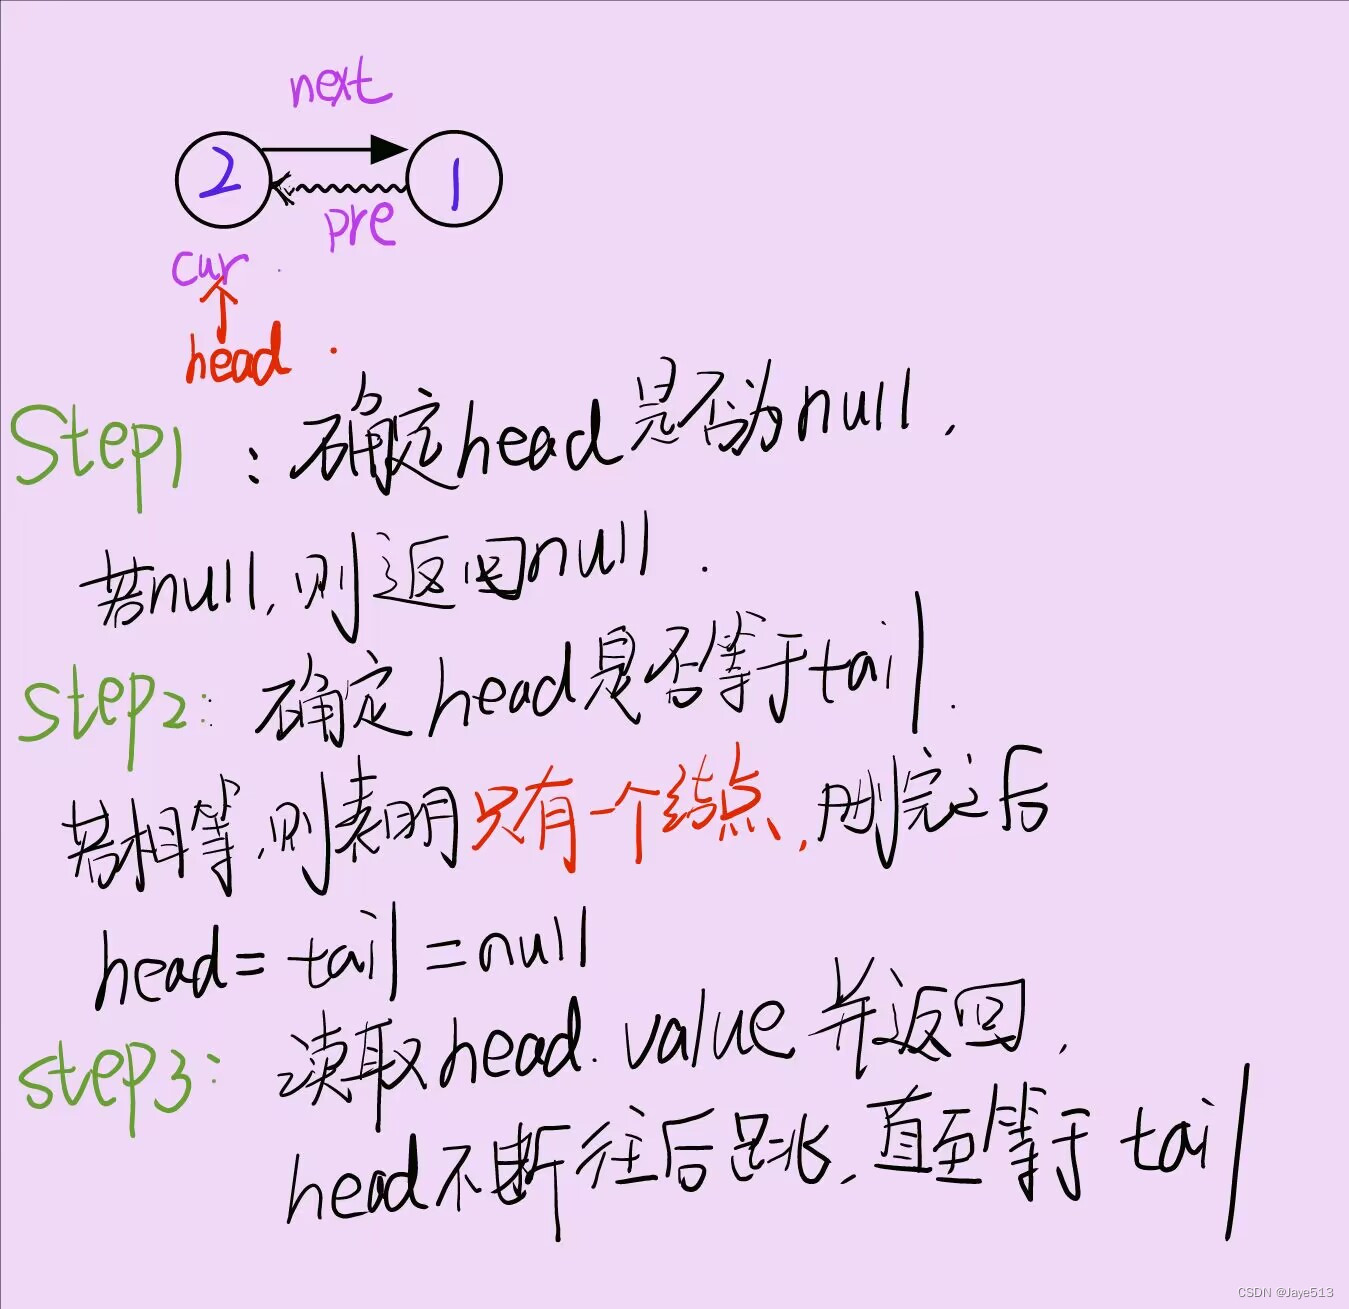 next
2
1
pre
cur
head
Step1：确定head是否为null，
若null，则返回null．
step2：确定head是否等于tail．
若相等，则表明只有一个结点，删完之后
head=tail=null
step3：读取head.value并返回，
head不断往后跳，直至等于tail
CSDN @Jaye513